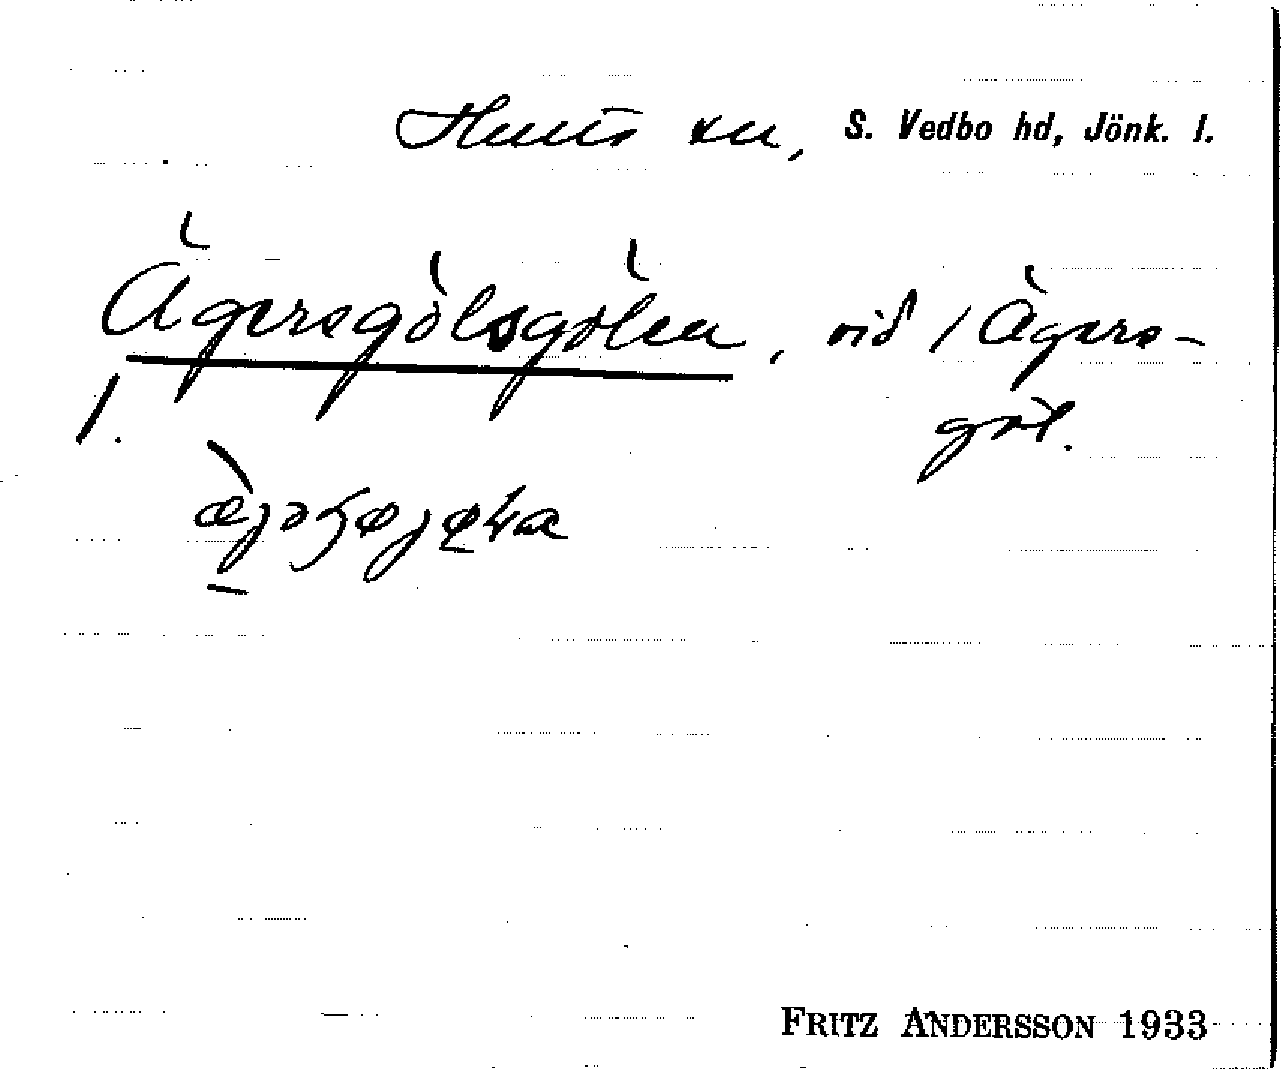 Hults sn, S. Vedbo hd, Jönk. l.
Ägersgölsgölen, vid / Ägers-
1.
göl.
FRITZ ANDERSSON 1933